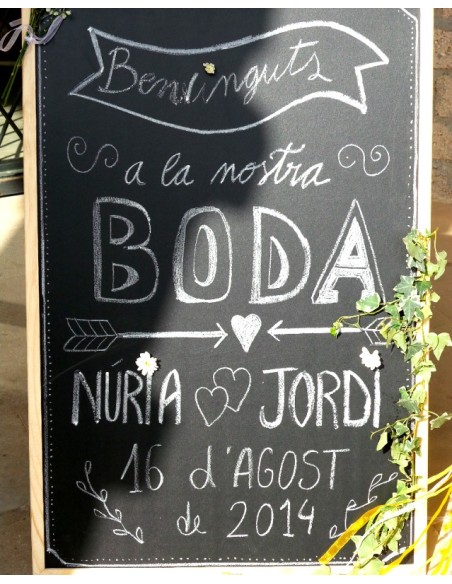 Benvinguts
a la nostra
BODA
NÚRIA JORDI
16 d'AGOST
de 2014